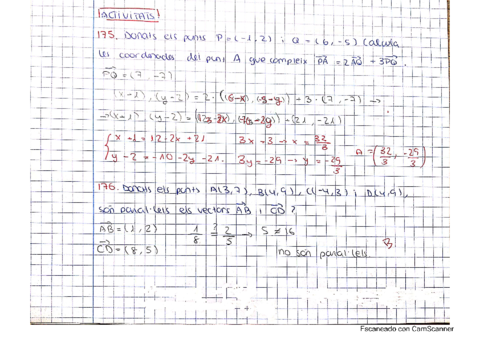 ACTIVITATS
175. Donats els punts P=(-1,2) i Q=(6,-5) calcula
les coordenades del punt A que compleix PA = 2AQ + 3PQ.
PQ = (7, -7)
(x+1), (y-2) = 2·(6-x), (-5-y) + 3·(7, -7) →
→ (x+1), (y-2) = (12-2x), (-10-2y) + (21, -21)
x+1 = 12-2x+21 3x = 32 → x = 32/3
y-2 = -10-2y-21. 3y = -29 → y = -29/3 A = (32/3, -29/3)
176. Donats els punts A(3,7), B(4,9), C(-4,3) i D(4,9),
són paral·lels els vectors AB i CD?
AB = (1, 2) 1/8 ? 2/5 → 5 ≠ 16
CD = (8, 5) no són paral·lels.
B
Escaneado con CamScanner